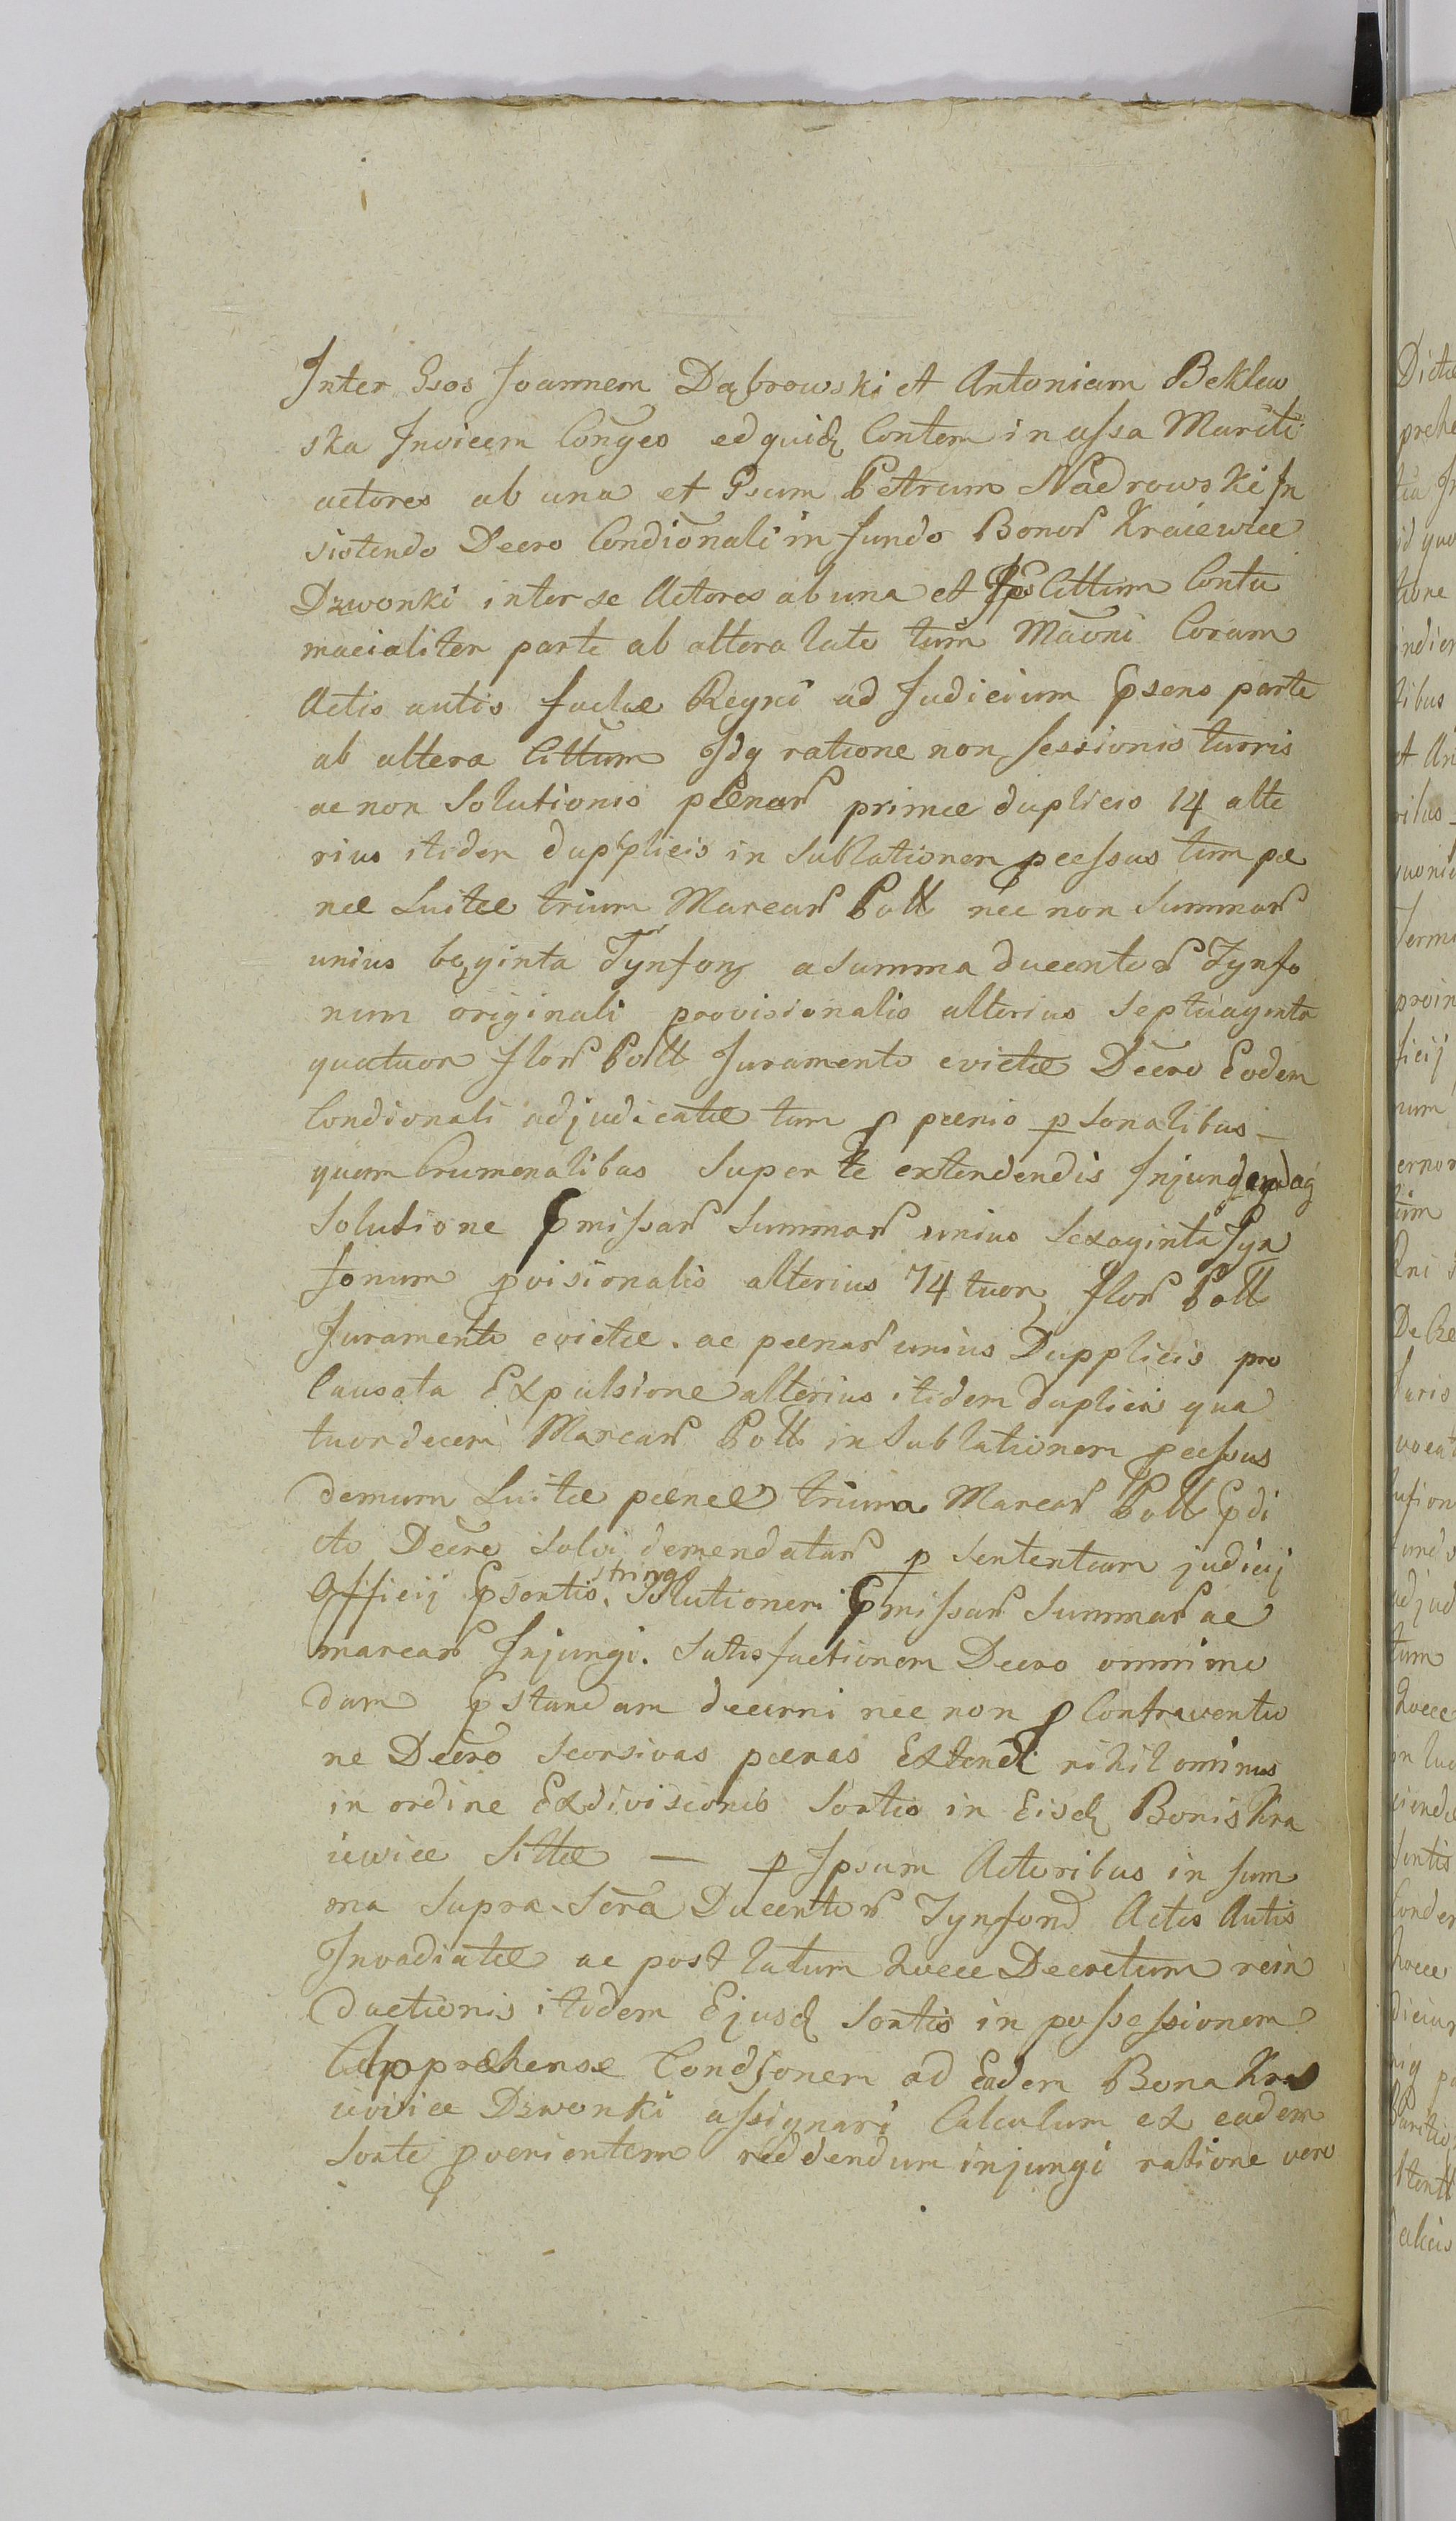 Inter Gsos Joannem Dąbrowski et Antoniam Beklew
ska Invicem Conges edquidz Contem in assa Mariti
actores ab una et Gsum Petrum Nadrowski In
sistendo Decro Condionali in fundo Bonor Kraiewice
Dzwonki inter se Actores ab una et Ipo Cittum Contu
macialiter parte ab altera lato tum Maoni Coram
Actis autis factae Regni ad Judicium Psens parte
ab altera Cittum Idq ratione non sessionis turris
ac non Solutionis paenar primae duplicis 14 alte
rius itidem dupplicis in Sublationem pcessus tum pae
nae Luitae trium Marcar Poll nec non Summar
unius 60ginta Tynfonz a Summa ducentor Tynfo
num originali provisionalis alterius Septuaginta
quatuor flor Poll Juramento evictae Decro Eodem
Condionali adjudicatae tum p paenis psonalibus
quam Crumenalibus Super te extendendis Injungendaq
Solutione Pmissar Summar unius Sexaginta Tyn
fonum pvisionalis alterius 74tuor flor Poll
Juramento evictae. ac paenar unius Dupplicis pro
Causata Expulsione alterius itidem duplicis qua
tuordecem Marcar Poll in Sublationem pcessus
demum Luitae paenae trium Marcar Poll Pdi
cto Decro Solvi demendatar p Sententiam judicij
Officij Psentis. stringi Solutionem Pmissar Summar ac
marcar Injungi. Satisfactionem Decro omnimo
dam Pstandam decerni nec non p Contraventio
ne Decro Seorsivas paenas Extendi nihilominus
in ordine Exdivisionis Sortis in Eisdz Bonis Kra
iewice Sittae — p Ipsum Actoribus in Sum
ma Supra Scra Ducentor Tynfond Actis Autis
Invadiatae ac post latum hocce Decretum rein
ductionis itidem Ejusdz Sortis in possessionem
Apprehensae Condsonem ad Eadem Bona Kra
iewice Dzwonki assignari Calculum ex eadem
Sorte pvenientem reddendum injungi ratione vero